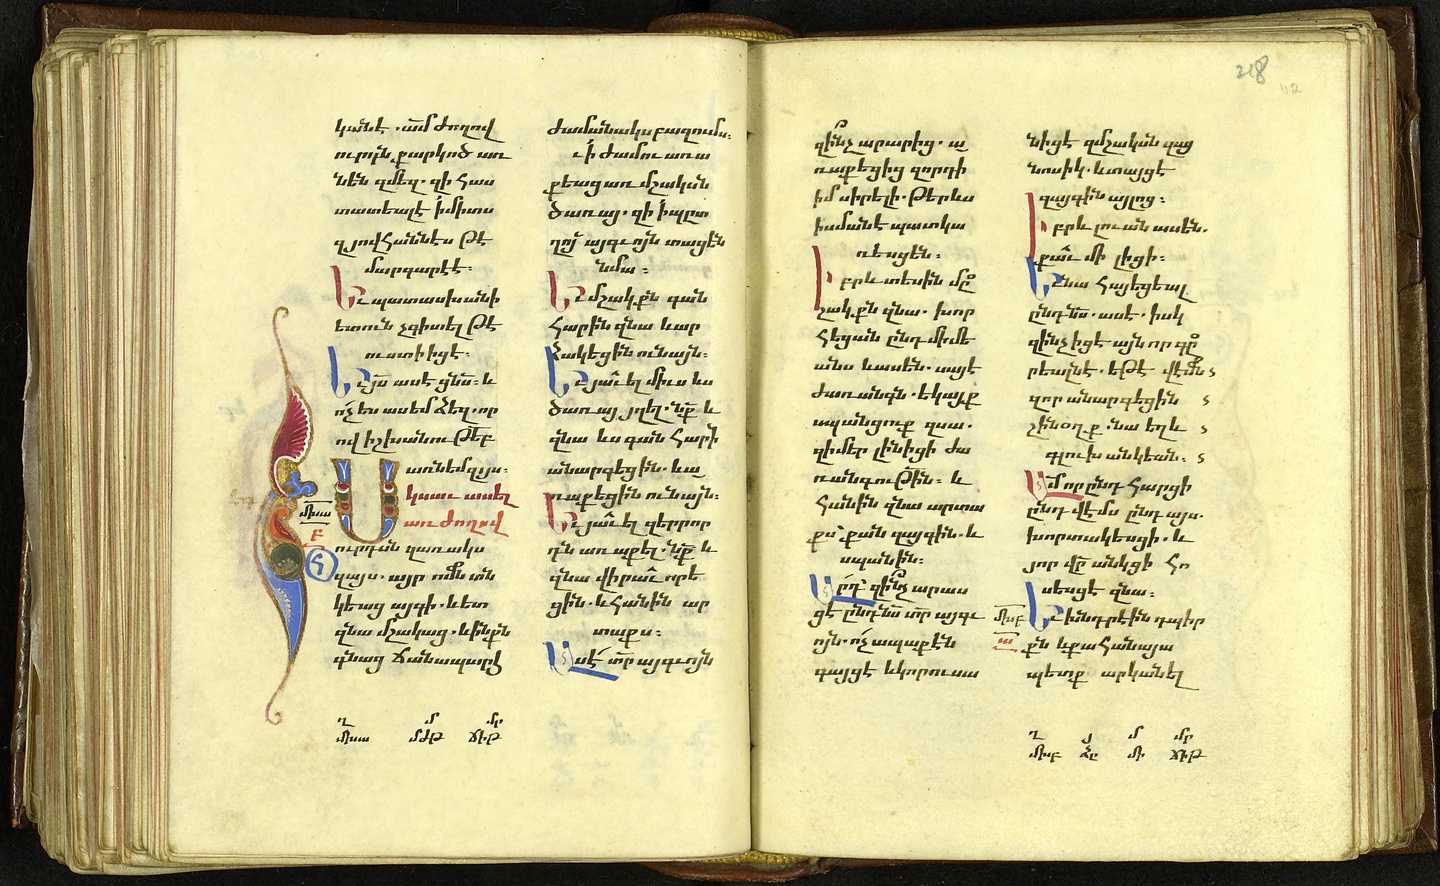 կանէ. ամ ժողով
ուրդն քարկոծ առ
նեն զմեզ. զի հաս
տատեալ է ի միտս
զյովհաննէս թէ
մարգարէ է։
Եւ պատասխանի
ետուն չգիտել թէ
ուստի իցէ։
Եւ յս ասէ ցնս. և
ոչ ես ասեմ ձեզ. որ
ով իշխանութբ
առնեմ զայս։
Սկսաւ ասել
առ ժողով
ուրդան զառակս
զայս. այր ոմն տն
կեաց այգի. և ետ
զնա մշակաց. և ինքն
գնաց ճանապարհ
ժամանակս բազումս։
Ի ժամու առա
քեաց առ մշակսն
ծառայ. զի ի պըտ
ղոյ այգւոյն տացեն
նմա։
Եւ մշակքն գան
հարին զնա և ար
ձակեցին ունայն։
Եւ յաւել միւս ևս
ծառայ յղել. նք և
զնա ևս գան հարի
անարգեցին. և ա
ռաքեցին ունայն։
Եւ յաւել զերրոր
դն առաքել. նք և
զնա վիրաւորե
ցին. և հանին ար
տաքս։
Ասէ տր այգւոյն
զինչ արարից. ա
ռաքեցից զորդի
իմ սիրելի. թերևս
ի սմանէ պատկա
ռեսցեն։
Իբրև տեսին մը
շակքն զնա. խոր
հեցան ընդ միմե
անս և ասեն. սայէ
ժառանգն. եկայք
սպանցուք զսա.
զի մեր լինիցի ժա
ռանգութին։ և
հանին զնա արտա
քս քան զայգին. և
սպանին։
Արդ զինչ արաս
ցէ ընդնս տր այգւ
ոյն. ոչ ապաքէն
գայցէ և կորուսա
նիցէ զմշակսն զայ
նոսիկ. և տայցէ
զայգին այլոց։
Իբրև լուան ասեն.
քաւ մի լիցի։
Եւ նա հայեցեալ
ընդնս. ասէ. իսկ
զինչ իցէ այն որ գը
րեալն է. եթէ վէմն
զոր անարգեցին
շինօղք. նա եղև
գլուխ անկեան։
Ամ որ ընդ հարցի
ընդ վէմս ընդ այս.
խորտակեսցի. և
յոր վր անկցի հո
սեսցէ զնա։
Եւ խնդրէին դպիր
քն և քահանայա
պետք արկանել
218